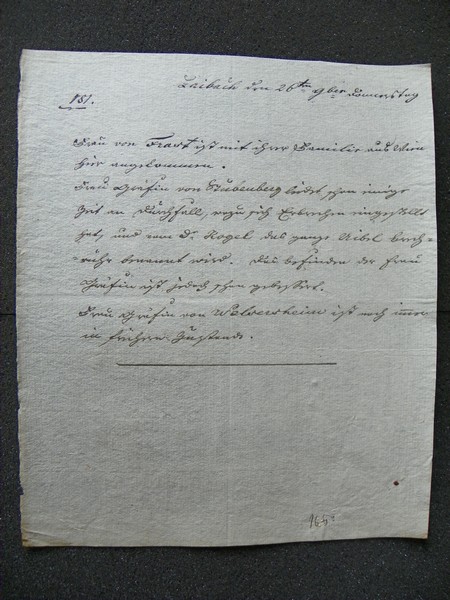 Laibach den 26ten 9ber Donnerstag
151.
Frau von Frast ist mit ihrer Familie aus Wien
hier angekommen.
Frau Gräfin von Stubenberg leidet schon einige
Zeit an Durchfall, wozu sich Erbrechen eingestellt
hat, und vom Dr. Kogel das ganze Uibel Brech-
=ruhr benannt wird. Das befinden der Frau
Gräfin ist jedoch schon gebessert.
Frau Gräfin von Welsersheim ist noch immer
in frühern Zustande.